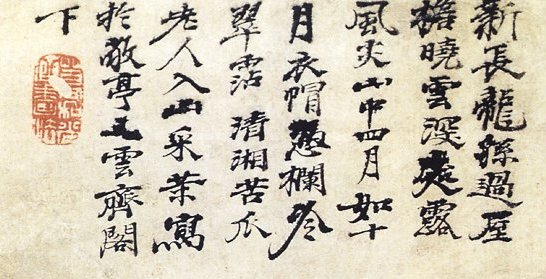 新長龍孫過屋
檐曉雲深處露
風尖山中四月如十
月衣帽憑欄冷
翠霑 清湘苦瓜
老人入山采茶寫
於敬亭之雲齊閣
下